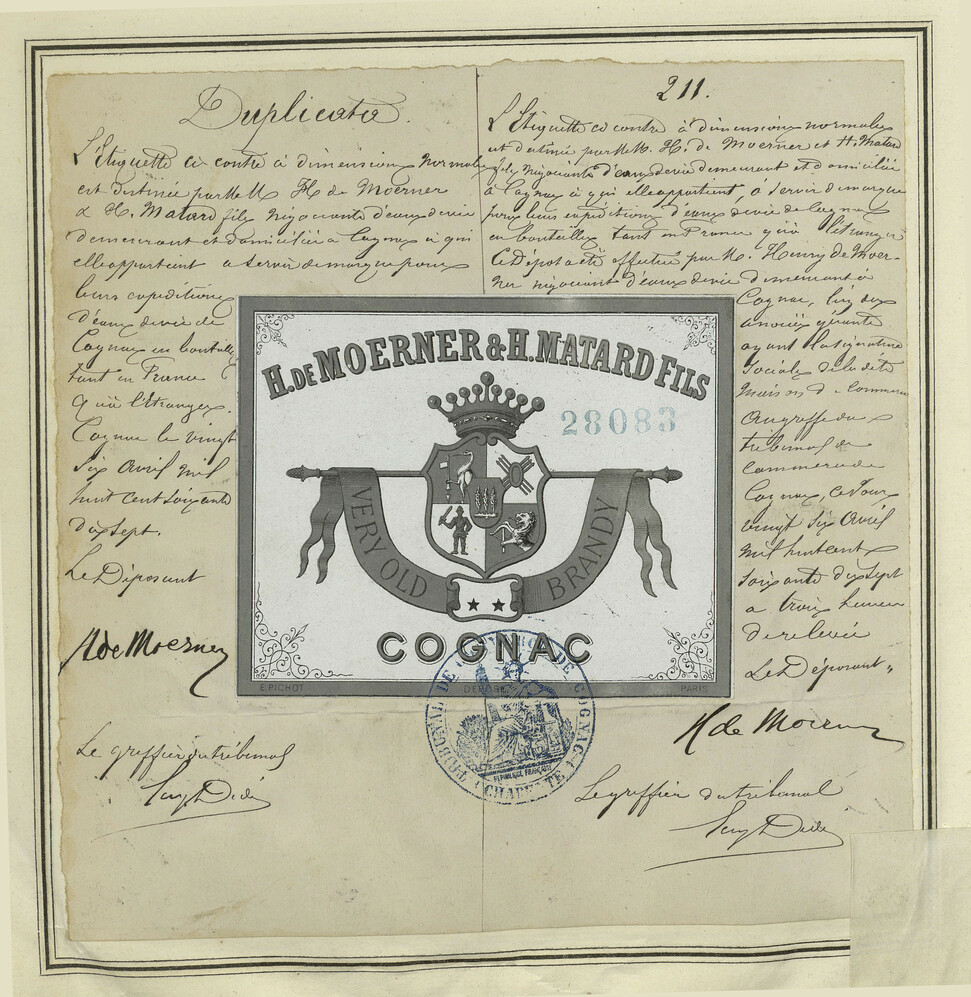 Duplicata.
L'Etiquette ci contre à dimensions normales
est destinée par MM H de Moerner
& H. Matard fils négociants d'eaux de vie
demeurant et domiciliés à Cognac à qui
elle appartient à servir de marque pour
leurs expéditions
d'eaux de vie de
Cognac en bouteilles
tant en France
qu'à l'étranger.
Cognac le vingt
six avril mil
huit cent soixante
dix sept.
Le Déposant
H de Moerner
Le greffier du tribunal
211.
L'Etiquette ci contre à dimensions normales
est destinée par MM. H. de Moerner et H. Matard
fils négociants d'eaux de vie demeurant et domiciliés
à Cognac à qui elle appartient, à servir de marque
pour leurs expéditions d'eaux de vie de Cognac
en bouteilles tant en France qu'à l'étranger
Ce Dépôt a été effectué par M. Henry de Moer-
ner négociant d'eaux de vie demeurant à
Cognac, l'un des
associés gérants
ayant la signature
sociale de la dite
maison de commerce
au greffe du
tribunal de
commerce de
Cognac, ce jour
vingt six avril
mil huit cent
soixante dix sept
à trois heures
de relevée
Le Déposant
H de Moerner
Le greffier du tribunal
H. DE MOERNER & H. MATARD FILS
28083
VERY OLD BRANDY
COGNAC
E. PICHOT DÉPOSÉ PARIS
TRIBUNAL DE COMMERCE DE COGNAC
RÉPUBLIQUE FRANÇAISE
(CHARENTE)